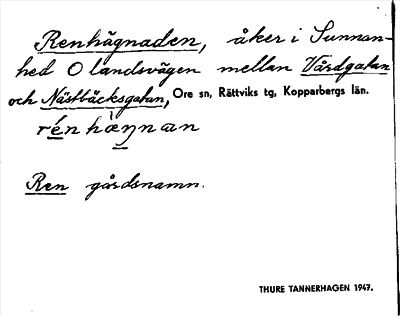 Renhägnaden, åker i Sunnan-
hed O landsvägen mellan Vårdgatan
och Nästbäcksgatan, Ore sn, Rättviks tg, Kopparbergs län.
Ren gårdsnamn.
THURE TANNERHAGEN 1947.